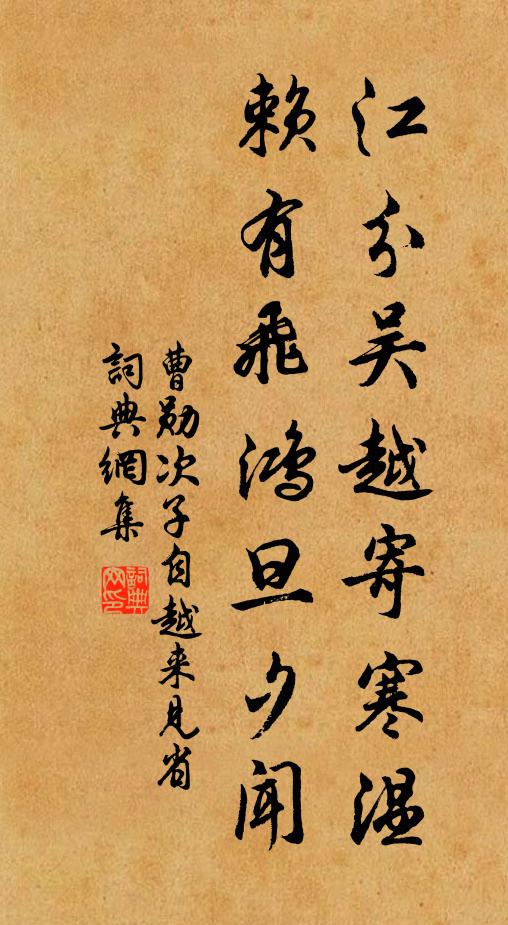 江分吴越寄寒温
赖有飛鸿旦夕闻
曹勋次子自越来見省
詞典網集
詞典
网印